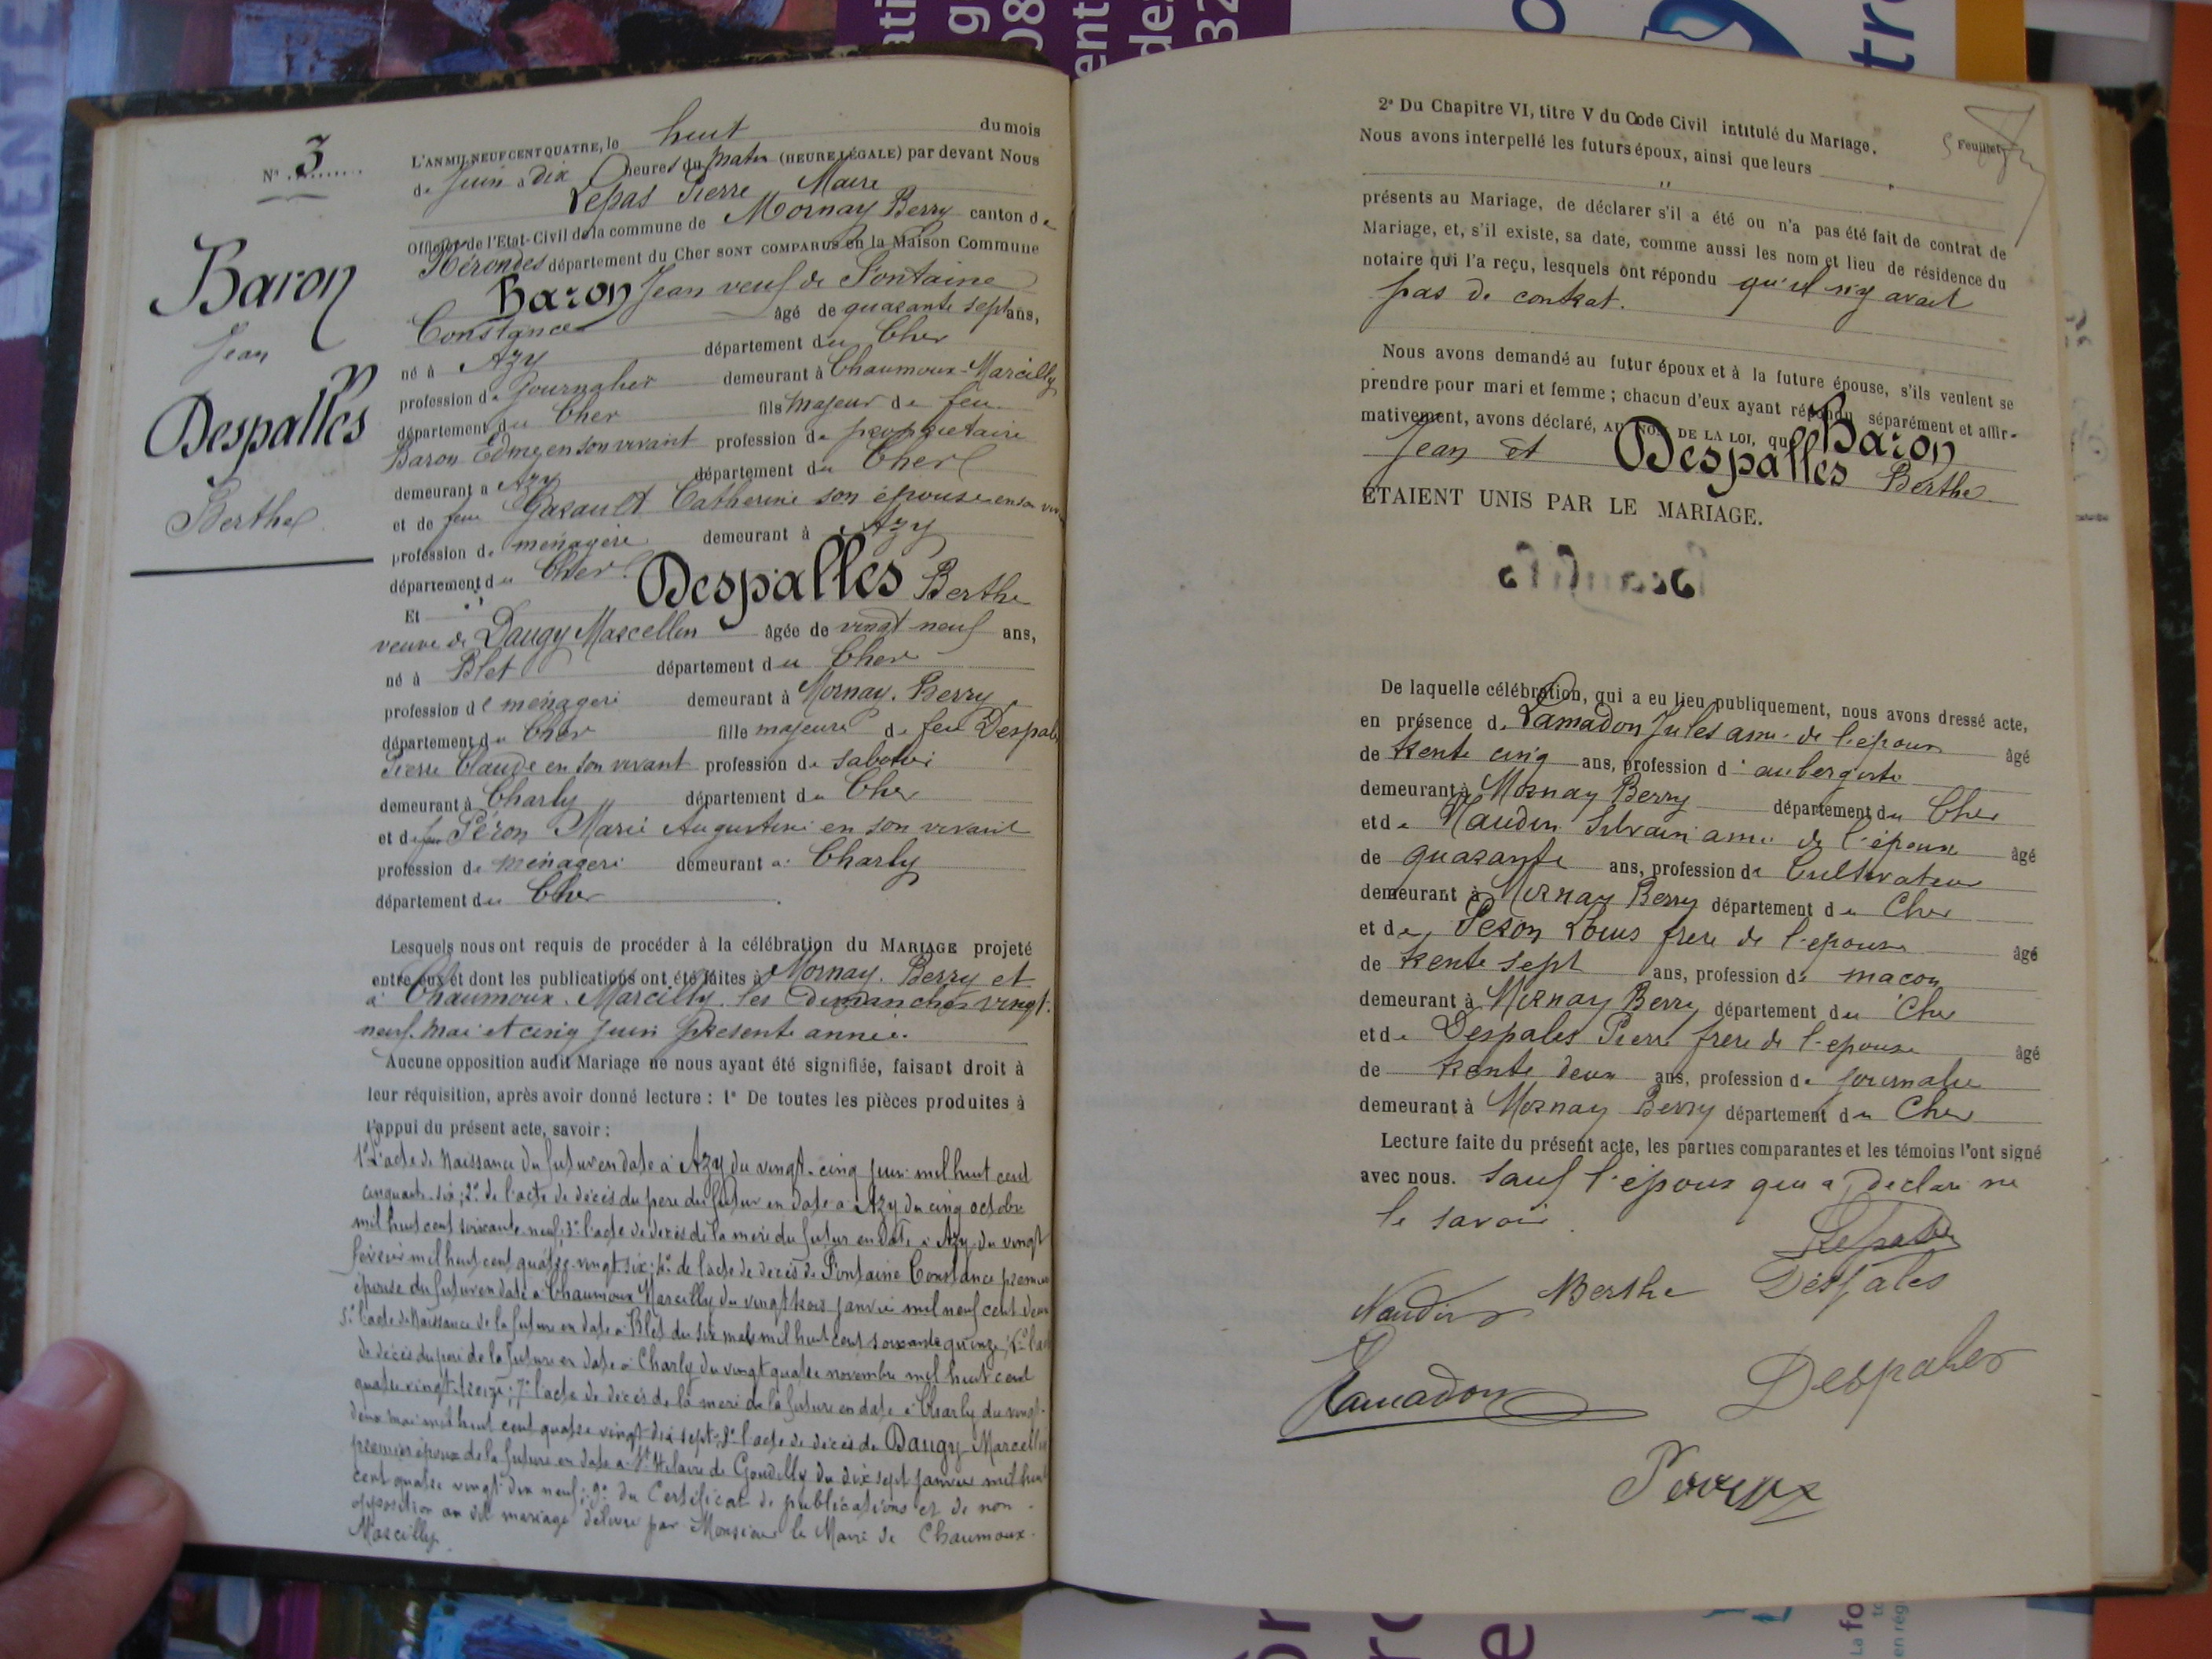 N° 3
Baron
Jean
Despalles
Berthe
L'AN MIL NEUF CENT QUATRE, le huit du mois
de Juin à Dix heures du matin (HEURE LÉGALE) par devant Nous
Lepas Pierre Maire
Officier de l'Etat-Civil de la commune de Mornay Berry canton de
Nérondes département du Cher SONT COMPARUS en la Maison Commune
Baron Jean veuf de Fontaine
Constance âgé de quarante sept ans,
né à Azy département du Cher
profession de Journalier demeurant à Chaumoux-Marcilly
département du Cher fils majeur de feu
Baron Edme en son vivant profession de propriétaire
demeurant à Azy département du Cher
et de feue Catherine son épouse en son
profession de ménagère demeurant à Azy
département du Cher.
Et Despalles Berthe
veuve de Daugy Marcellin âgée de vingt neuf ans,
né à Blet département du Cher
profession de ménagère demeurant à Mornay. Berry
département du Cher fille majeure de feu Despal
Pierre Claude en son vivant profession de sabotier
demeurant à Charly département du Cher
et de feue Péron Marie Augustine en son vivant
profession de ménagère demeurant à Charly
département du Cher
Lesquels nous ont requis de procéder à la célébration du MARIAGE projeté
entre eux et dont les publications ont été faites à Mornay. Berry et
à Chaumoux. Marcilly. les Dimanches vingt.
neuf. mai et cinq juin présente année.
Aucune opposition audit Mariage ne nous ayant été signifiée, faisant droit à
leur réquisition, après avoir donné lecture : 1° De toutes les pièces produites à
l'appui du présent acte, savoir :
1° L'acte de Naissance du futur en date à Azy du vingt-cinq juin mil huit cent
cinquante-six; 2° de l'acte de décès du père du futur en date à Azy du cinq octobre
mil huit cent soixante neuf; 3° l'acte de décès de la mère du futur en date à Azy du vingt
février mil huit cent quatre-vingt-six; 4° de l'acte de décès de Fontaine Constance première
épouse du futur en date à Chaumoux Marcilly du vingt trois janvier mil neuf cent deux
5° l'acte de Naissance de la future en date à Blet du six mil huit cent soixante quinze; 6° l'acte
de décès du père de la future en date à Charly du vingt quatre novembre mil huit cent
quatre vingt treize; 7° l'acte de décès de la mère de la future en date à Charly du vingt-
deux mai mil huit cent quatre vingt dix sept; 8° l'acte de décès de Daugy Marcellin
premier époux de la future en date à St Hilaire de Gondilly du dix sept janvier mil huit
cent quatre vingt dix neuf; 9° du Certificat de publications et de non-
opposition au dit mariage délivré par Monsieur le Maire de Chaumoux-
Marcilly.
Feuillet
2° Du Chapitre VI, titre V du Code Civil intitulé du Mariage.
Nous avons interpellé les futurs époux, ainsi que leurs
"
présents au Mariage, de déclarer s'il a été ou n'a pas été fait de contrat de
Mariage, et, s'il existe, sa date, comme aussi les nom et lieu de résidence du
notaire qui l'a reçu, lesquels ont répondu qu'il n'y avait
pas de contrat.
Nous avons demandé au futur époux et à la future épouse, s'ils veulent se
prendre pour mari et femme ; chacun d'eux ayant répondu séparément et affir-
mativement, avons déclaré, AU NOM DE LA LOI, que Baron
Jean et Despalles Berthe
ETAIENT UNIS PAR LE MARIAGE.
De laquelle célébration, qui a eu lieu publiquement, nous avons dressé acte,
en présence de Lamadon Jules ami de l'époux âgé
de trente cinq ans, profession d'aubergiste
demeurant à Mornay Berry département du Cher
et de Naudin Silvain ami de l'époux âgé
de quarante ans, profession de Cultivateur
demeurant à Mornay Berry département du Cher
et de Peron Louis frère de l'épouse âgé
de trente sept ans, profession de maçon
demeurant à Mornay Berry département du Cher
et de Despales Pierre frère de l'épouse âgé
de trente deux ans, profession de journalier
demeurant à Mornay Berry département du Cher
Lecture faite du présent acte, les parties comparantes et les témoins l'ont signé
avec nous. Sauf l'époux qui a déclaré ne
le savoir.
Naudin Berthe Despales
Lamadon Despales